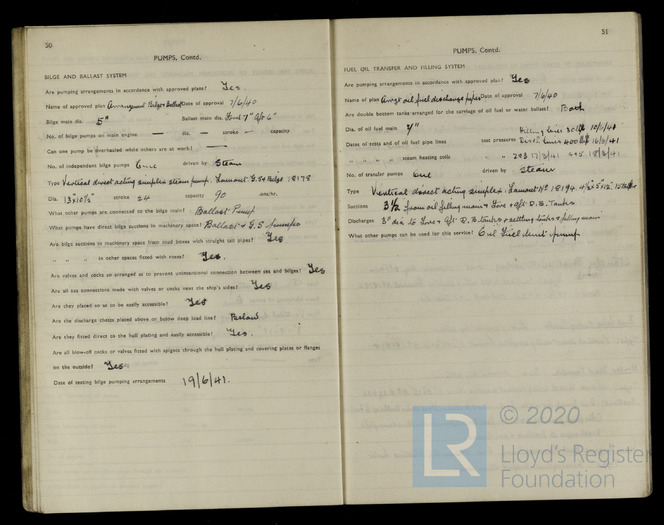 50
PUMPS, Contd.
BILGE AND BALLAST SYSTEM
Are pumping arrangements in accordance with approved plans? Yes
Name of approved plan Arrangement Bilge & Ballast Date of approval 7/6/40
Bilge main dia. 5" Ballast main dia. Ford 7" Aft 6"
No. of bilge pumps on main engine — dia. — stroke — capacity
Can one pump be overhauled while others are at work? —
No. of independent bilge pumps One driven by Steam
Type Vertical direct acting simplex steam pump. Lamont G.S. & Bilge 18178
Dia. 13"x10½" stroke 24 capacity 90 tons/hr.
What other pumps are connected to the main bilge? Ballast Pump
What pumps have direct bilge suctions in machinery space? Ballast & G.S. pumps
Are bilge suctions in machinery space from mud boxes with straight tail pipes? Yes
" " " in other spaces fitted with roses? Yes.
Are valves and cocks so arranged as to prevent unintentional connection between sea and bilges? Yes
Are all sea connections made with valves or cocks next the ship's sides? Yes
Are they placed so as to be easily accessible? Yes
Are the discharge chests placed above or below deep load line? Below
Are they fitted direct to the hull plating and easily accessible? Yes.
Are all blow-off cocks or valves fitted with spigots through the hull plating and covering plates or flanges
on the outside? Yes
Date of testing bilge pumping arrangements 19/6/41.
51
PUMPS, Contd.
FUEL OIL TRANSFER AND FILLING SYSTEM
Are pumping arrangements in accordance with approved plan? Yes
Name of plan Arrgt oil fuel discharge pipes Date of approval 7/6/40
Are double bottom tanks arranged for the carriage of oil fuel or water ballast? Both
Dia. of oil fuel main 7"
Filling lines 30 lb
Dates of tests and of oil fuel pipe lines test pressures 400 lb
" " " " steam heating coils "
No. of transfer pumps One driven by Steam
Type Vertical direct acting simplex. Lamont No 18194.
Suctions 3½ from oil filling main & Fore & Aft D.B. Tanks
Discharges 3" dia to Fore & Aft D.B. tanks & settling tanks & filling main
What other pumps can be used for this service? Oil Fuel Unit pump
LR
© 2020
Lloyd's Register
Foundation